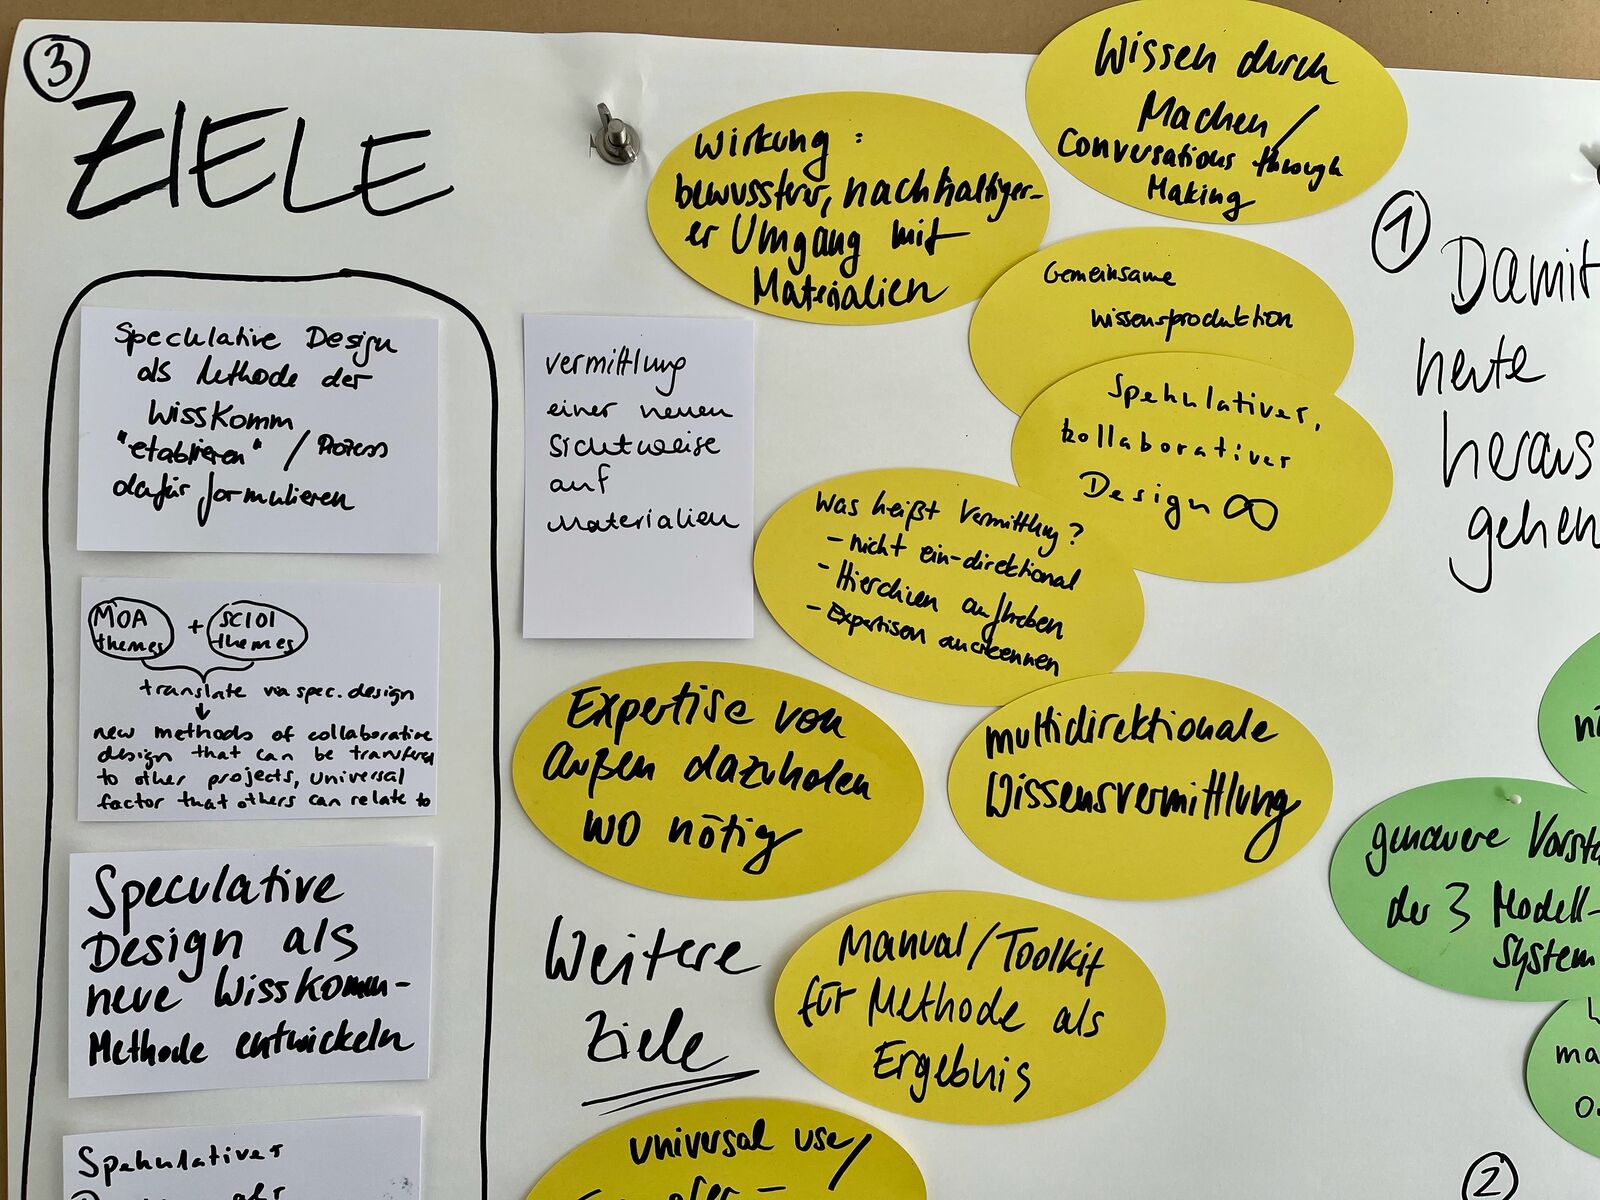 3
ZIELE
Speculative Design
als Methode der
WissKomm
"etablieren" / Prozess
dafür formulieren
MOA
themes
+
SCIOI
themes
translate via spec. design
↓
new methods of collaborative
design that can be transfered
to other projects, universal
factor that others can relate to
Speculative
Design als
neue WissKomm-
Methode entwickeln
Spekulatives
Vermittlung
einer neuen
Sichtweise
auf
Materialien
Wirkung:
bewussterer, nachhaltiger-
er Umgang mit
Materialien
Wissen durch
Machen /
Conversations through
Making
Gemeinsame
Wissensproduktion
Spekulatives,
kollaboratives
Design ∞
Was heißt Vermittlung?
- nicht ein-direktional
- Hierchien aufheben
- Expertisen anerkennen
Expertise von
Außen dazuholen
wo nötig
multidirektionale
Wissensvermittlung
Weitere
Ziele
Manual/Toolkit
für Methode als
Ergebnis
universal use/
1
Damit
heute
heraus
gehen
genauere
der 3 Modell-
system
ma
2